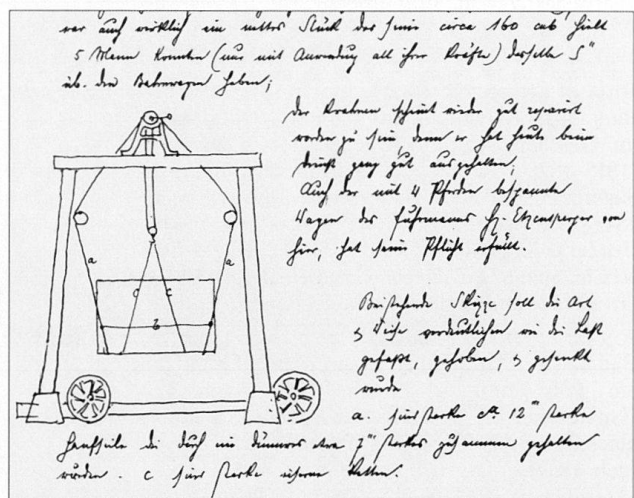 war auch wirklich ein nettes Stück der seine circa 160 cub' hielt
5 Mann konnten (nur mit Anwendung all ihrer Kräfte) derselbe 5"
üb. den Bahnwagen heben;
der Krahnen scheint wieder gut repariert
worden zu sein, denn er hat heute beim
ganz gut ausgehalten;
Auch der mit 4 Pferden bespannte
Wagen des Fuhrmanns Hr. Etzensperger von
hier, hat seine Pflicht erfüllt.
a a
c c
b
Beistehende Skizze soll die Art
& Weise verdeutlichen wie die Last
gefaßt, gehoben, & gesenkt
wurde
a. starke 12''' starke
Hanfseile die durch ein dünneres etwa 7''' starkes zusammen gehalten
wurden. c starke eiserne Ketten.